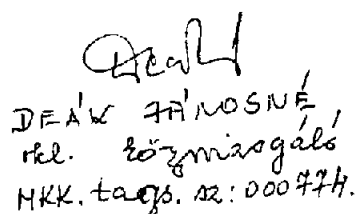 DEÁK JÁNOSNÉ
okl. közvizsgáló
MKK. tags. sz: 000774.